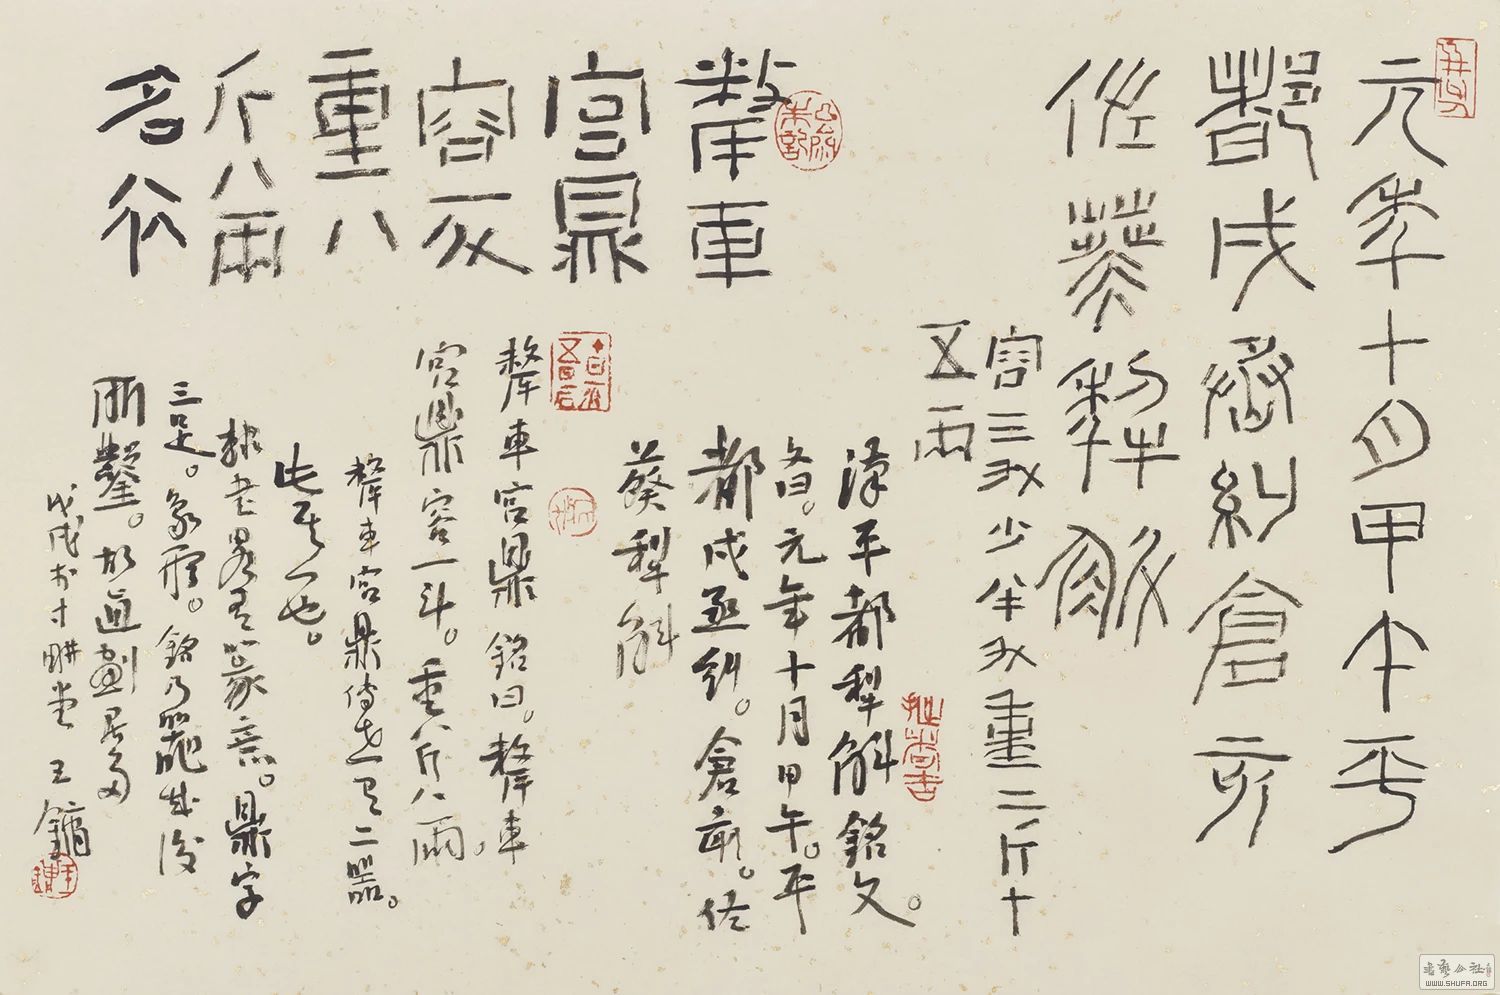 元年十月甲午平
都戌丞糾倉亥
佐葵犁斛
容三升少半升重二斤十
五兩
漢平都犁斛銘文。
文曰。元年十月甲午。平
都戌丞糾。倉亥。佐
葵犁斛
犛車
宮鼎
容一斗
重八
斤八兩
名公
犛車宮鼎銘曰。犛車
宮鼎容一斗。重八斤八兩。
犛車宮鼎傳世有二器。
此其一也。
隸書略有篆意。鼎字
三足。象形。銘乃器成後
所鑿。故直劃居多
戊戌於寸耕堂王鏞
WWW.SHUFA.ORG